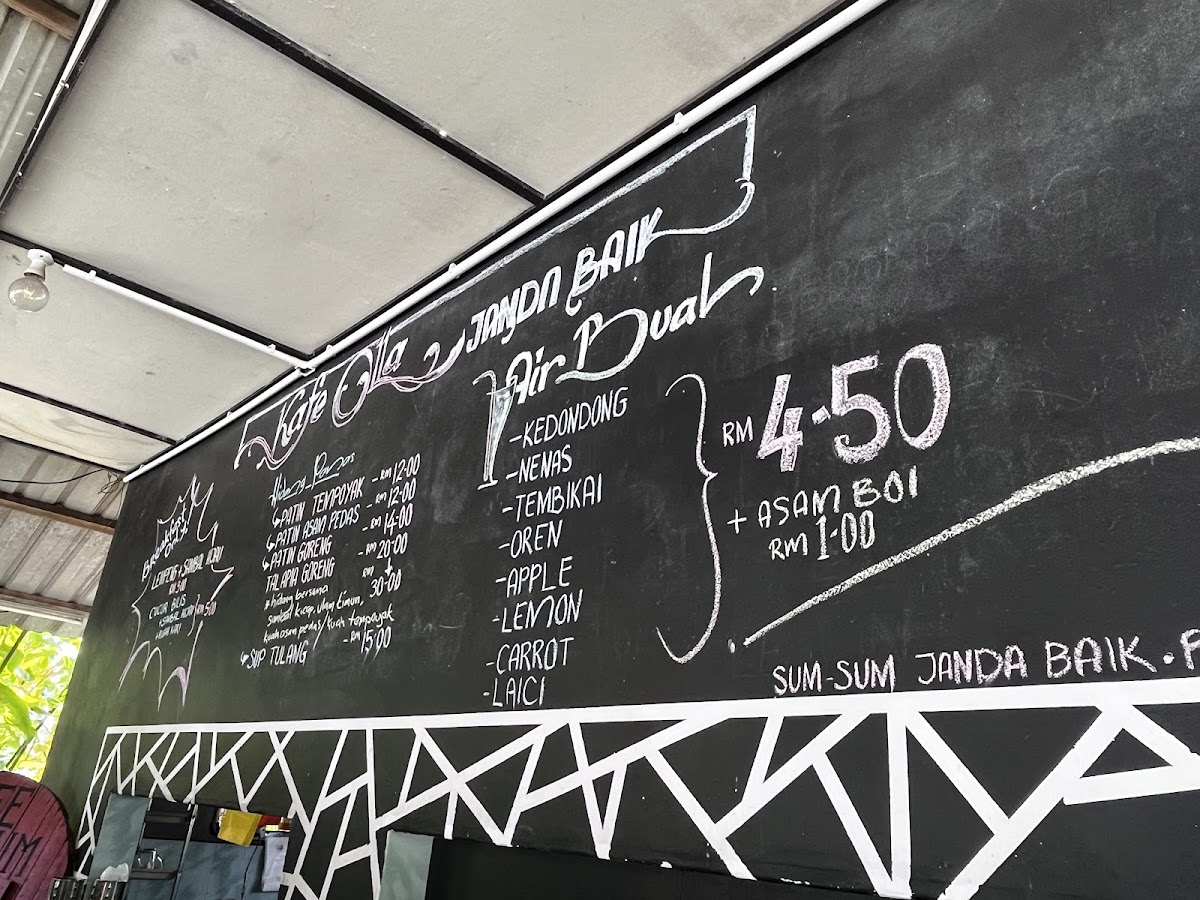 Kafe Olla JANDA BAIK
Breakfast
LEMPENG + SAMBAL
CUCUR BILIS
+ SAMBAL KICAP RM 5.00
Hidang Panas
PATIN TEMPOYAK - RM 12.00
PATIN ASAM PEDAS - RM 12.00
PATIN GORENG - RM 14.00
TALAPIA GORENG - RM 20.00
RM 30.00
* hidang bersama
sambal kicap, ulam timun,
kuah asam pedas/kuah tempoyak
SUP TULANG - RM 15.00
Air Buah
- KEDONDONG
- NENAS
- TEMBIKAI
- OREN
- APPLE
- LEMON
- CARROT
- LAICI
RM 4.50
+ ASAM BOI
RM 1.00
SUM-SUM JANDA BAIK .